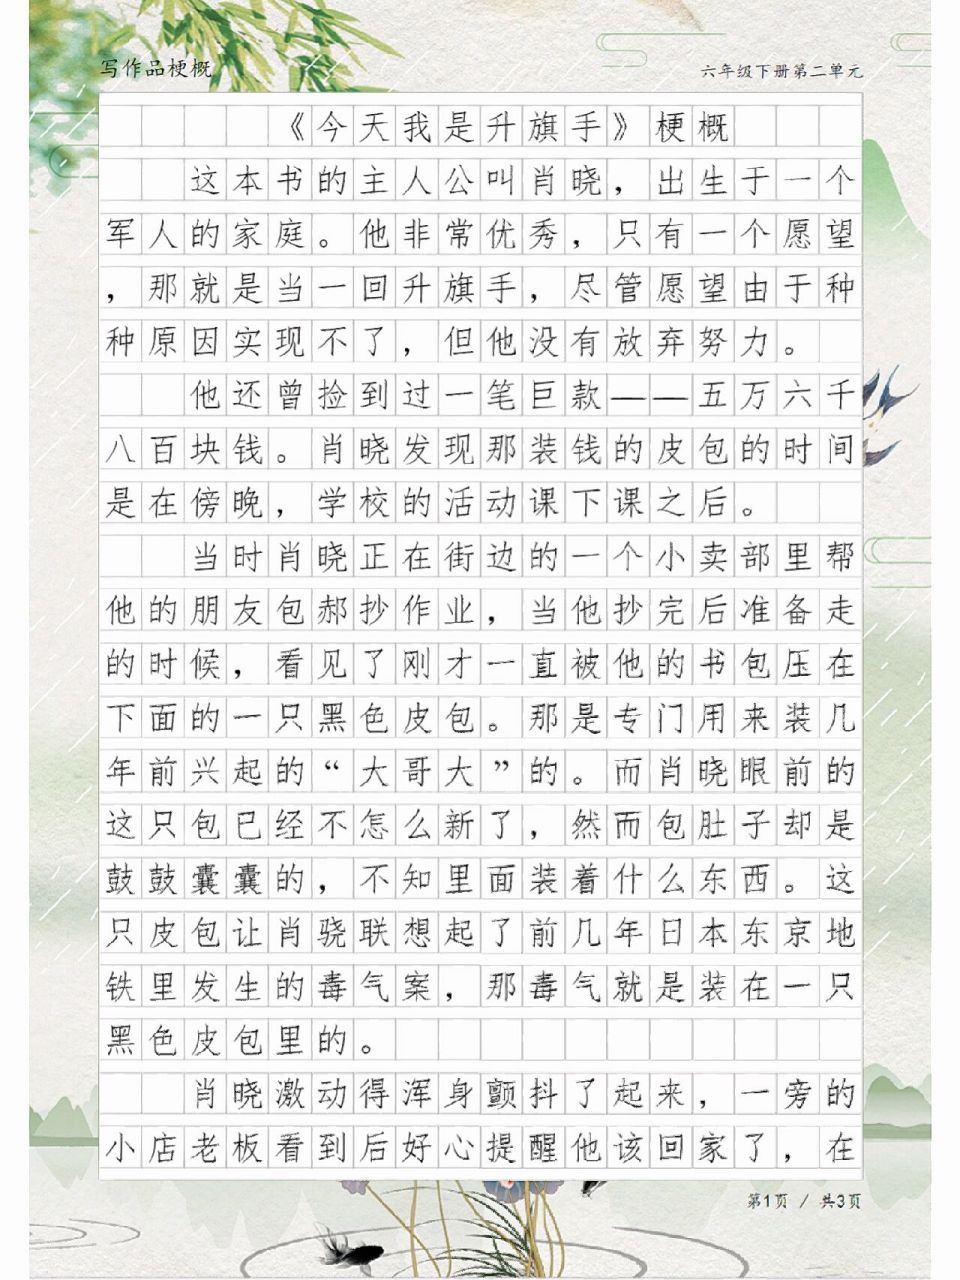 写作品梗概
六年级下册第二单元
《今天我是升旗手》梗概
这本书的主人公叫肖晓，出生于一个
军人的家庭。他非常优秀，只有一个愿望
，那就是当一回升旗手，尽管愿望由于种
种原因实现不了，但他没有放弃努力。
他还曾捡到过一笔巨款——五万六千
八百块钱。肖晓发现那装钱的皮包的时间
是在傍晚，学校的活动课下课之后。
当时肖晓正在街边的一个小卖部里帮
他的朋友包郝抄作业，当他抄完后准备走
的时候，看见了刚才一直被他的书包压在
下面的一只黑色皮包。那是专门用来装几
年前兴起的“大哥大”的。而肖晓眼前的
这只包已经不怎么新了，然而包肚子却是
鼓鼓囊囊的，不知里面装着什么东西。这
只皮包让肖骁联想起了前几年日本东京地
铁里发生的毒气案，那毒气就是装在一只
黑色皮包里的。
肖晓激动得浑身颤抖了起来，一旁的
小店老板看到后好心提醒他该回家了，在
第1页 / 共3页